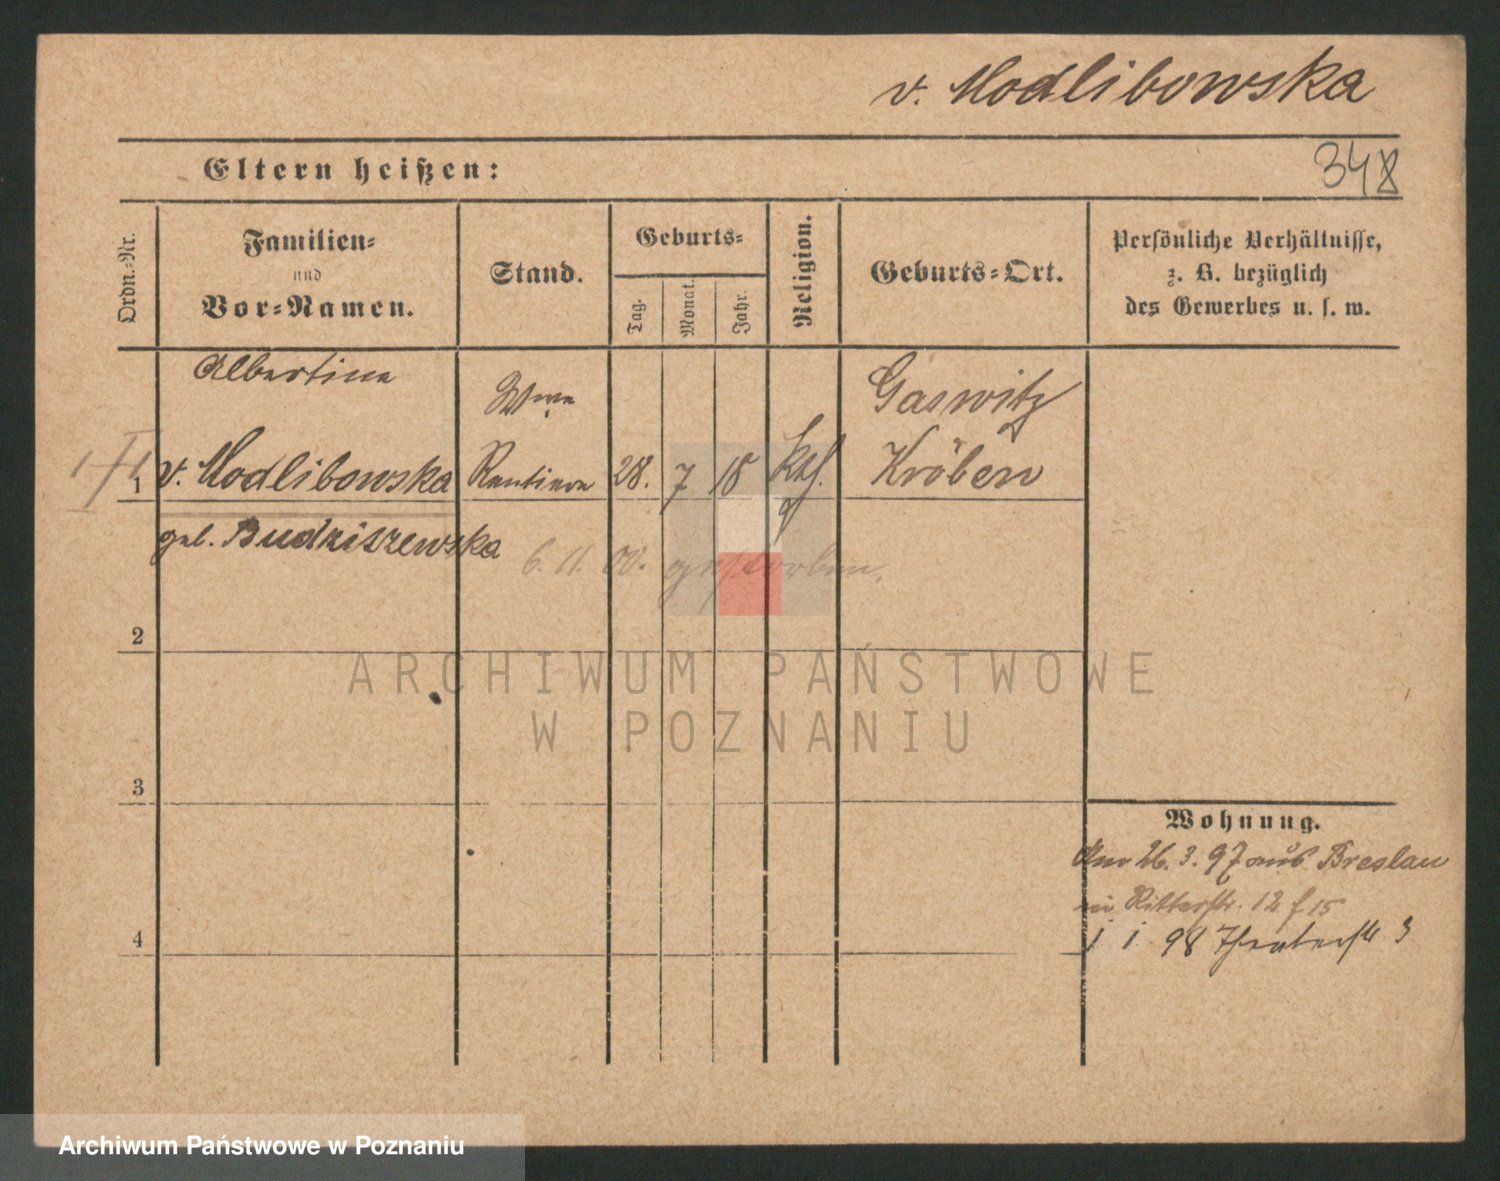 v. Modlibowska
348
Eltern heißen:
Ordn.-Nr.
Familien-
und
Vor-Namen.
Stand.
Geburts-
Tag.
Monat.
Jahr.
Religion.
Geburts-Ort.
Persönliche Verhältnisse,
z. B. bezüglich
des Gewerbes u. s. w.
Albertine
Wwe
Gaswitz
1 v. Modlibowska Rentiere 28. 7 18 kth. Kröben
geb. Budziszewska
6. 11. 00. gestorben.
2
ARCHIWUM PAŃSTWOWE
W POZNANIU
3
Wohnung.
26. 3. 97 aus Breslau
Ritterstr. 12 f 15
4
1 1 98 Theaterstr 3
Archiwum Państwowe w Poznaniu